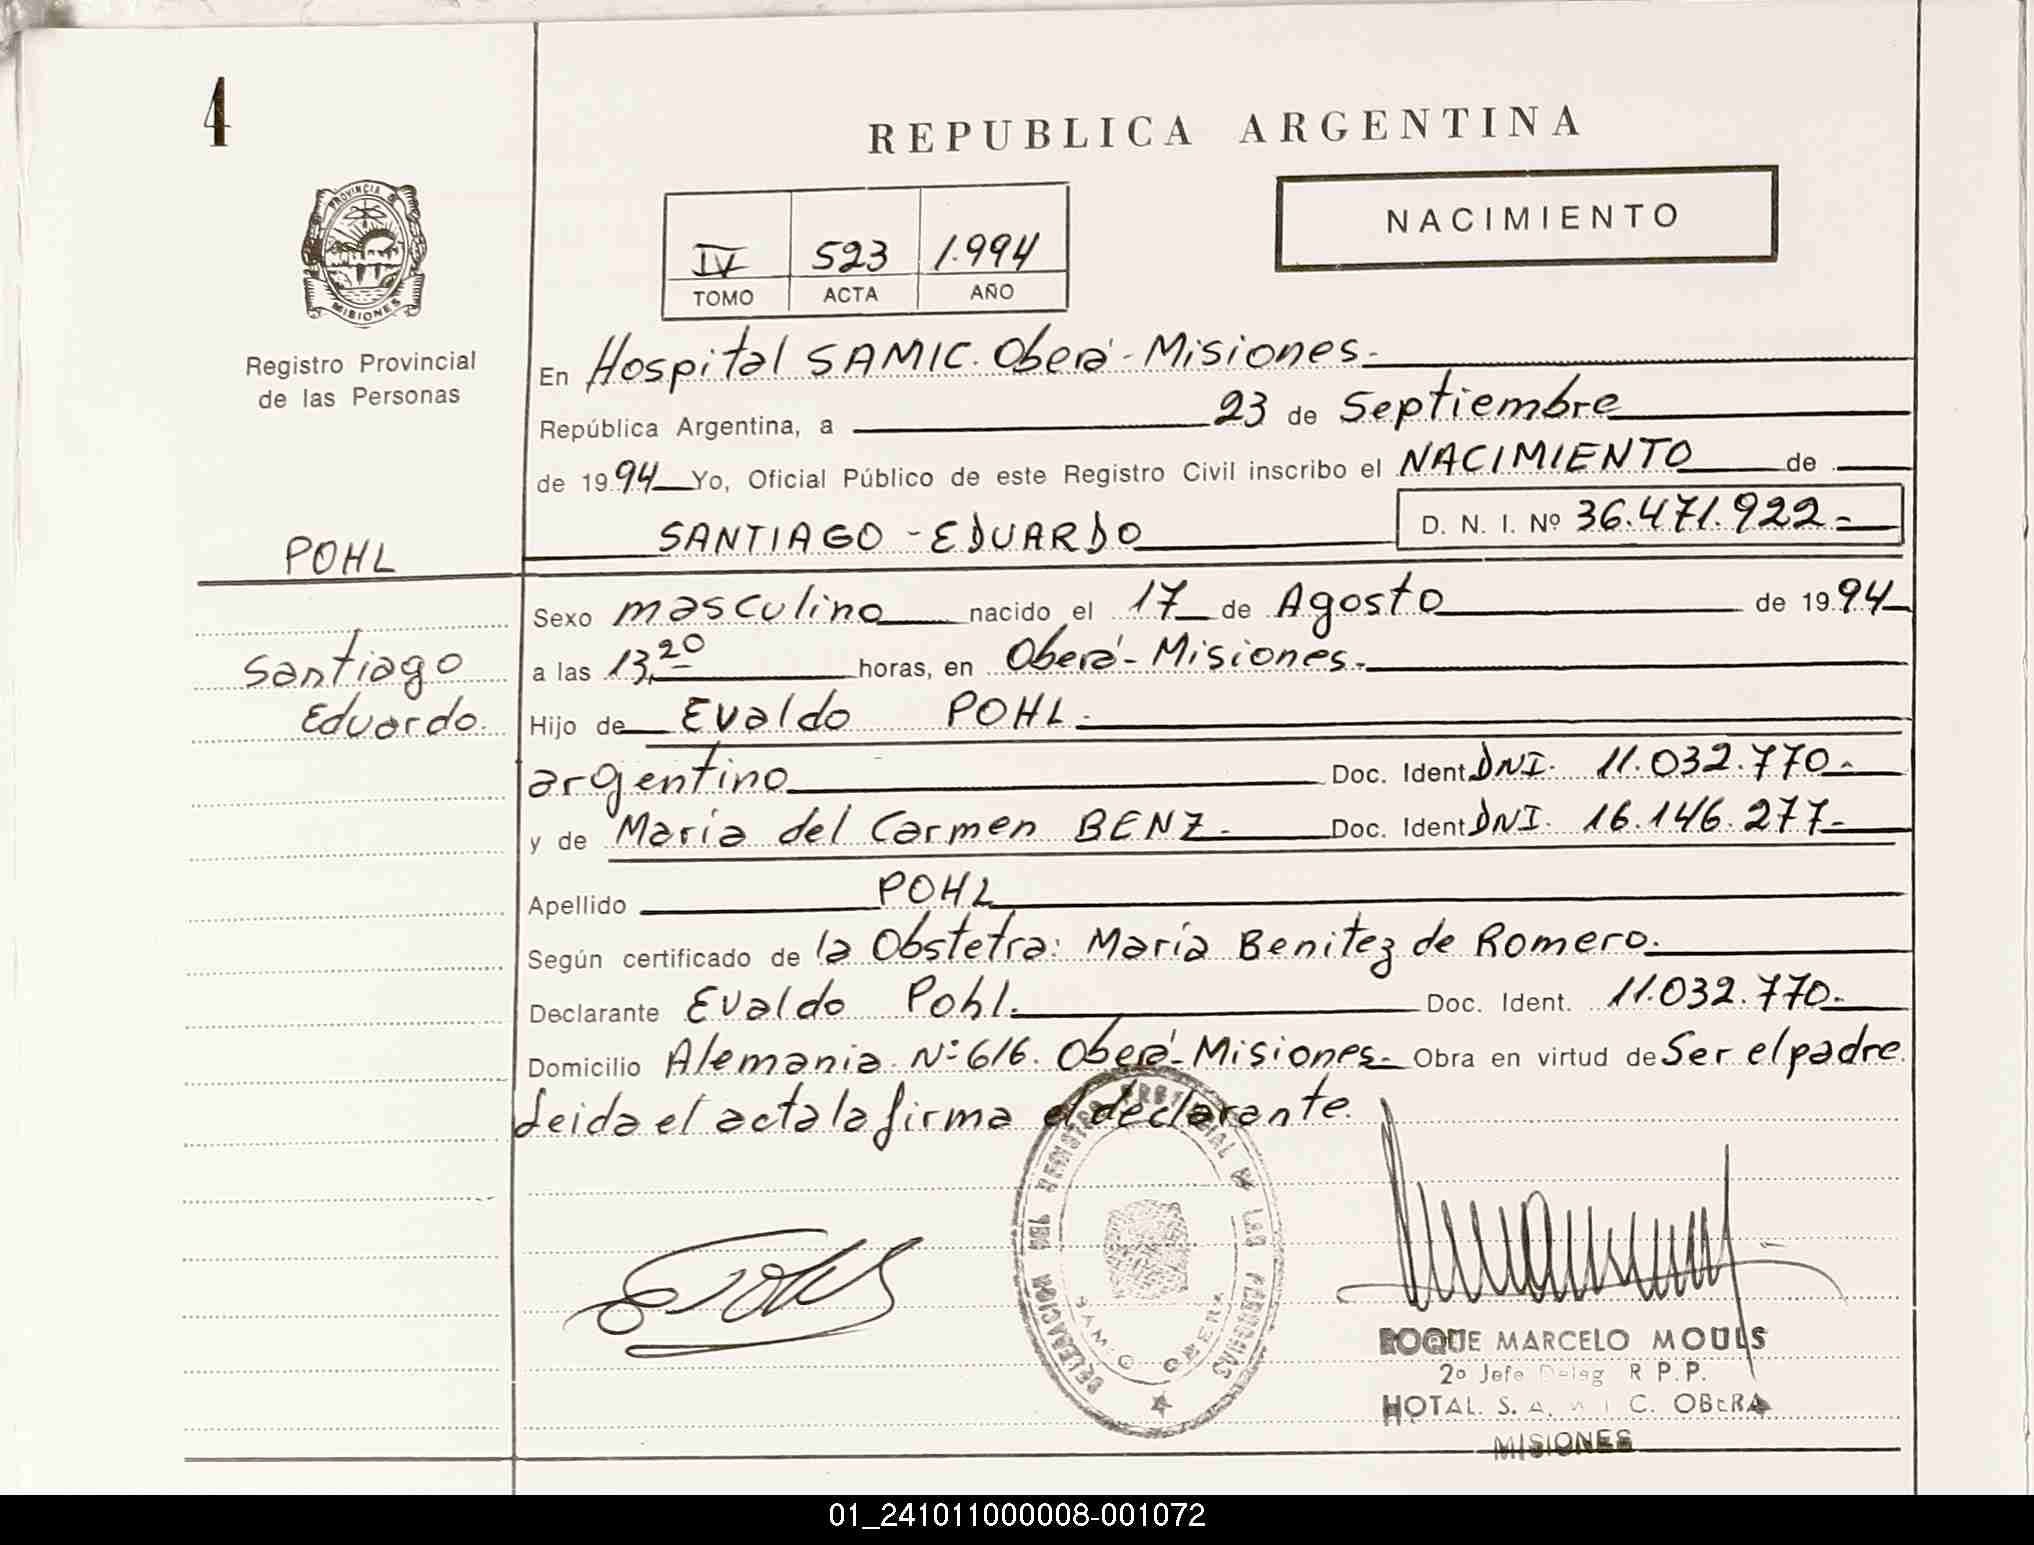 4
REPUBLICA ARGENTINA
PROVINCIA DE
MISIONES
Registro Provincial
de las Personas
IV 523 1.994
TOMO ACTA AÑO
NACIMIENTO
En Hospital SAMIC. Oberá - Misiones.
República Argentina, a 23 de Septiembre
de 1994 Yo, Oficial Público de este Registro Civil inscribo el NACIMIENTO de
SANTIAGO - EDUARDO D. N. I. Nº 36.471.922.-
POHL
Santiago
Eduardo.
Sexo masculino nacido el 17 de Agosto de 1994
a las 13,20 horas, en Oberá - Misiones.
Hijo de Evaldo POHL.
argentino Doc. Ident DNI. 11.032.770.-
y de María del Carmen BENZ. Doc. Ident DNI. 16.146.277-
Apellido POHL
Según certificado de la Obstetra: María Benitez de Romero.
Declarante Evaldo Pohl. Doc. Ident. 11.032.770.
Domicilio Alemania Nº 616. Oberá - Misiones - Obra en virtud de Ser el padre.
Leida el acta la firma el declarante.
REGISTRO PROVINCIAL DE LAS PERSONAS
DELEGACION
SAMIC OBERA
ROQUE MARCELO MOULS
2º Jefe Deleg R P.P.
HOTAL. S. A. M I C. OBERA
MISIONES
01_241011000008-001072